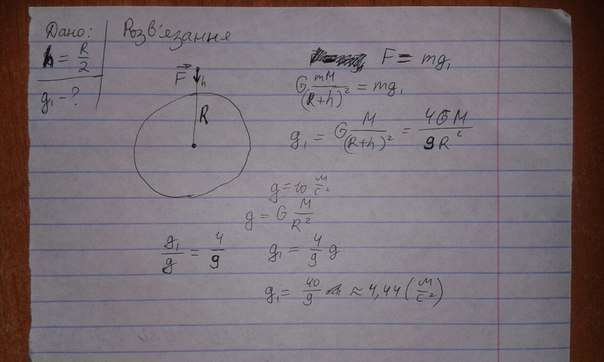 Дано:
h = R/2
g₁ - ?
Розв'язання
F⃗ h
R
F = mg₁
G mM/(R+h)² = mg₁
g₁ = G M/(R+h)² = 4GM/9R²
g = 10 м/с²
g = G M/R²
g₁/g = 4/9 g₁ = 4/9 g
g₁ = 40/9 ≈ 4,44 (м/с²)